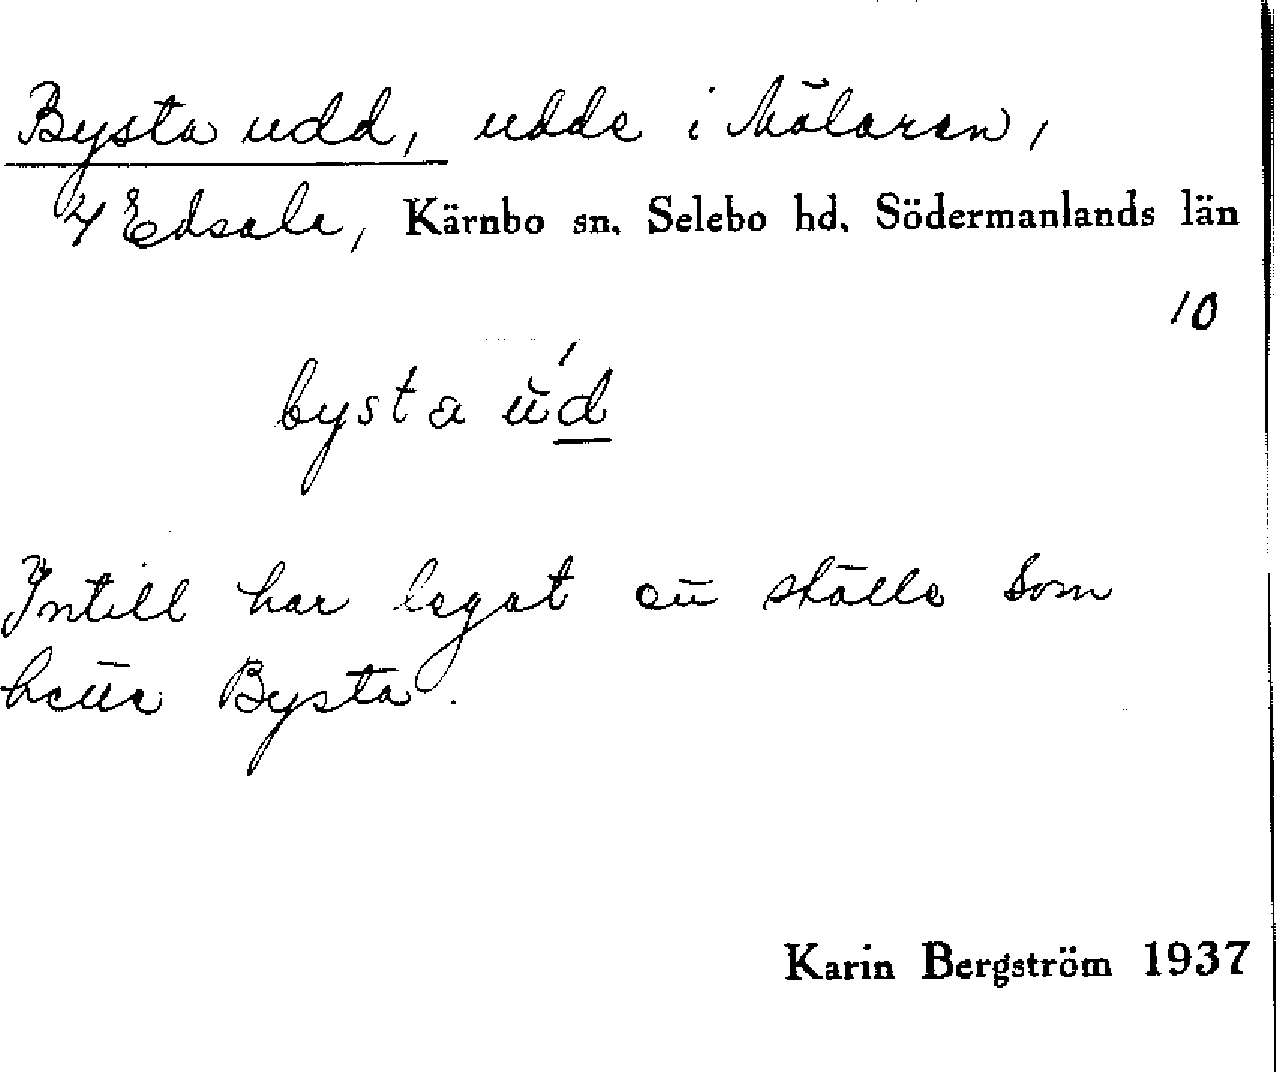 Bysta udd, udde i Mälaren,
4 Edsala, Kärnbo sn. Selebo hd. Södermanlands län
10
bysta ŭ́d
Intill har legat ett ställe som
hette Bysta.
Karin Bergström 1937